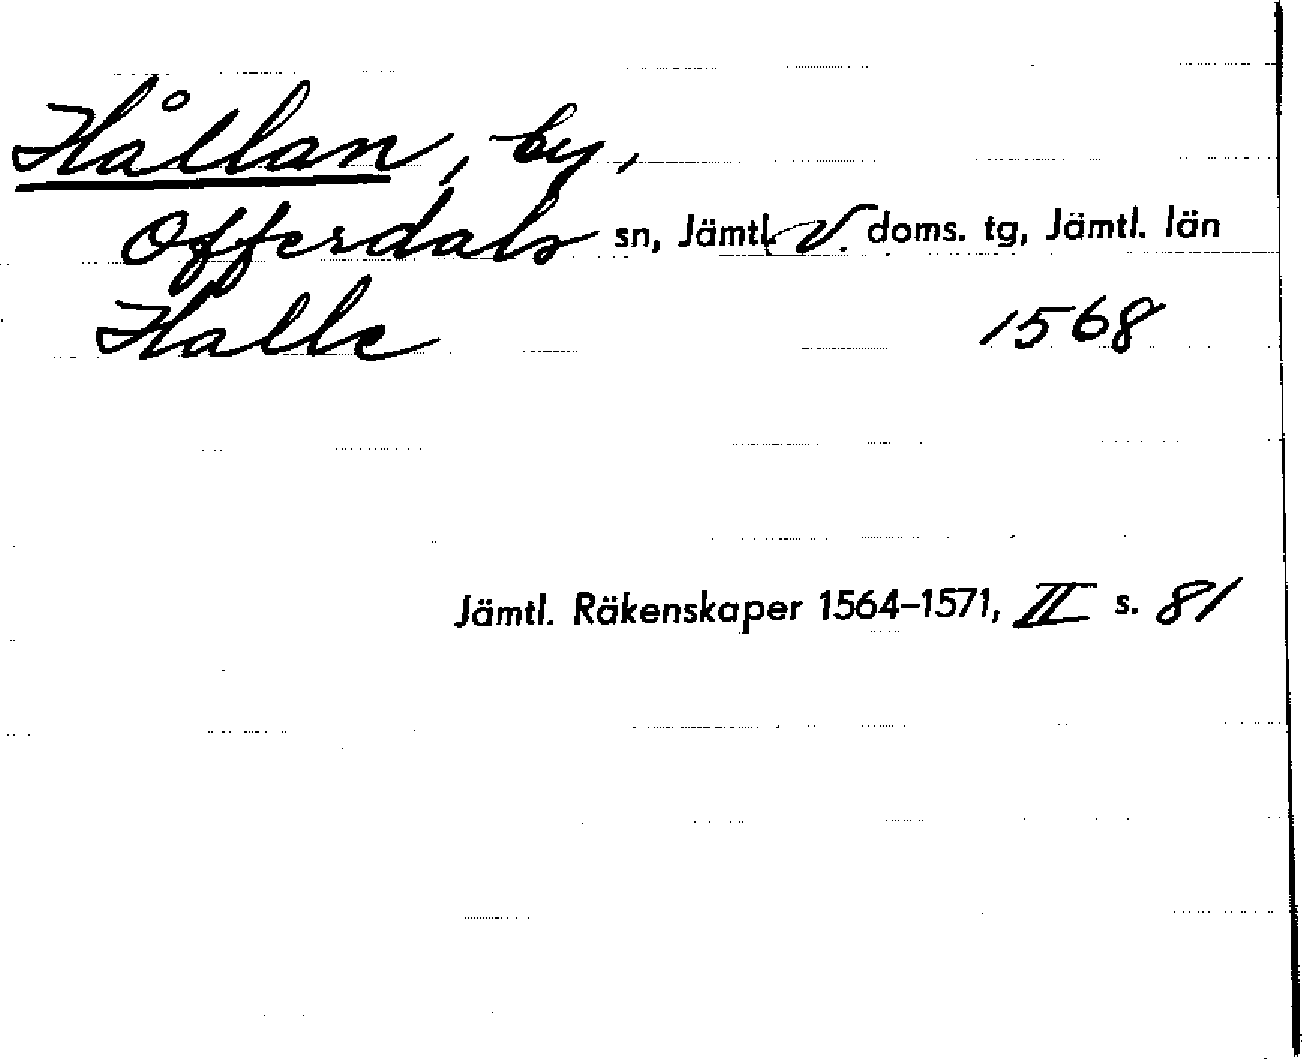 Hållan, by,
Offerdals sn, Jämtl. V. doms. tg, Jämtl. län
Halle 1568
Jämtl. Räkenskaper 1564–1571, II s. 81